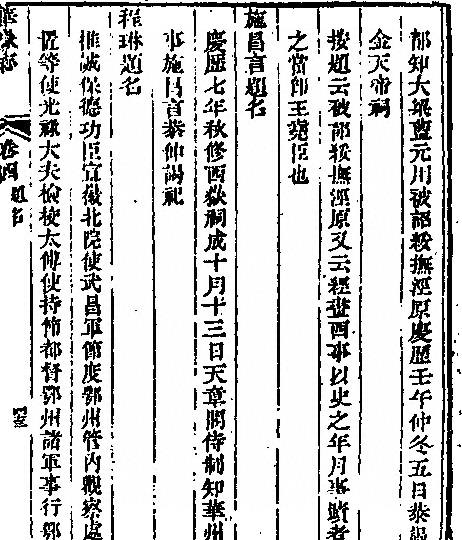 都知大梁藍元用被詔綏撫涇原慶曆壬午仲冬五日恭謁
金天帝祠
按題云被詔綏撫涇原又云經畫西事以史之年月事蹟考
之當即王堯臣也
施昌言題名
慶歷七年秋修西嶽祠成十月十三日天章閣侍制知華州
事施昌言恭仲謁祀
程琳題名
推誠保德功臣宣徽北院使武昌軍節度鄂州管內觀察處
置等使光祿大夫檢校太傅使持節都督鄂州諸軍事行鄂
卷四 題名